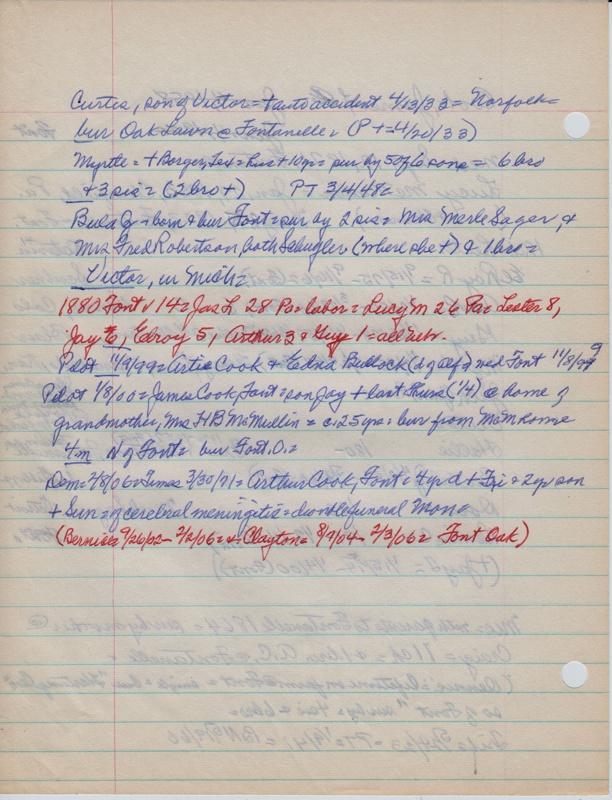 Curtis, son of Victor = + auto accident 4/13/33 = Norfolk =
bur Oak Lawn @ Fontanelle = (P + = 4/20/33)
Myrtle = + Borger, Tex = Lust + 10 yr = sur by 5 of 6 sons = 6 bro
+ 3 sis = (2 bro +) PT 3/4/48 =
Beulag = born & bur Font = sur by 2 sis = Mrs Merle Sager, &
Mrs Fred Robertson, both Schuyler (where she +) & 1 bro =
Victor, in Mich =
1880 Font v 14 = Jas L 28 Pa = labor = Lucy M 26 Pa = Lester 8,
Jay 6, Edroy 5, Arthur 3 & Guy 1 = all Nebr.
Pilot 11/9/99 = Artie Cook & Edna Bullock (d of Alf) wed Font 11/8/99
Pilot 1/8/00 = James Cook, Font = son Jay + last Thurs ('/4) @ home of
grandmother, Mrs H B McMullin = c. 25 yrs = bur from McM home
4 m N of Font = bur Font. O. =
Dem = 2/8/06 = Times 3/30/71 = Arthur Cook, Font = 4 yr d + Fri & 2 yr son
+ Sun = of cerebral meningitis = double funeral Mon =
(Bernice 9/26/02 - 2/2/06 = & = Clayton = 8/9/04 - 2/3/06 = Font Oak)